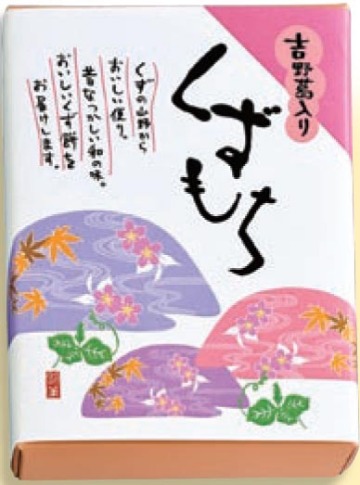 吉野葛入り
くず
もち
くずの山野から
おいしい便り。
昔なつかしい和の味。
おいしいくず餅を
お届けします。